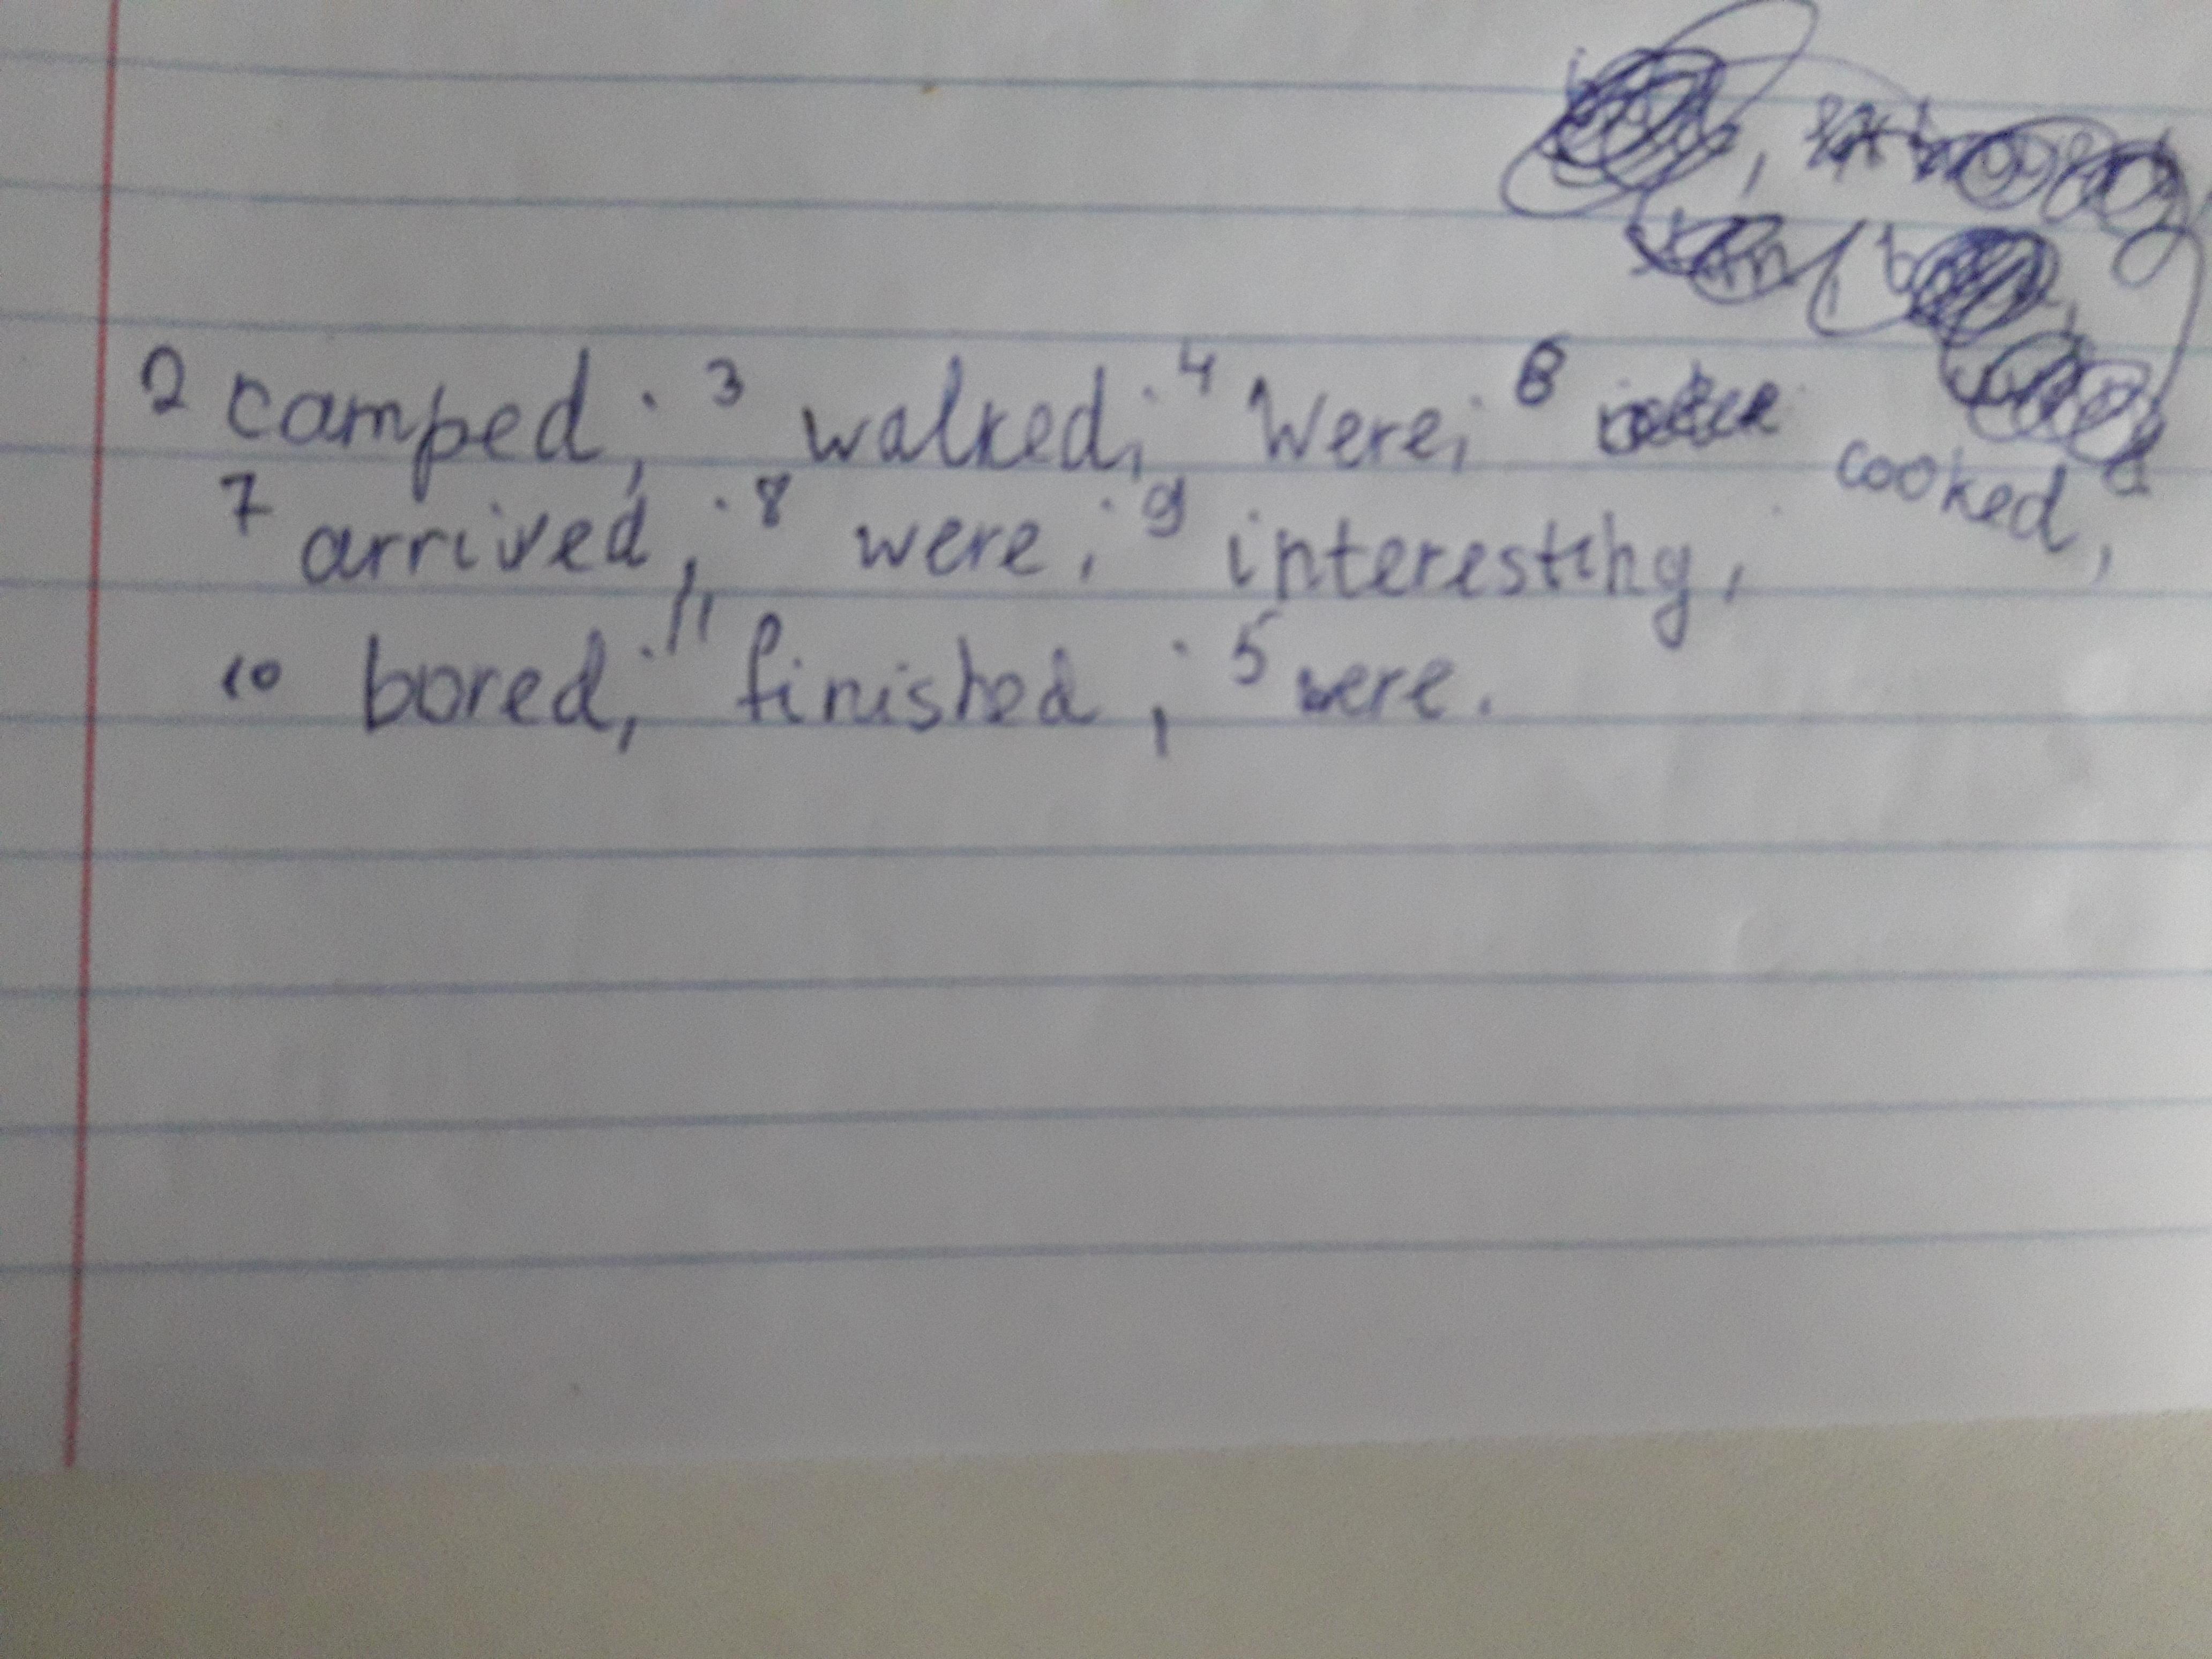 2 camped; 3 walked; 4 Were; 6 cooked,
7 arrived; 8 were; 9 interesting,
10 bored; 11 finished; 5 were.